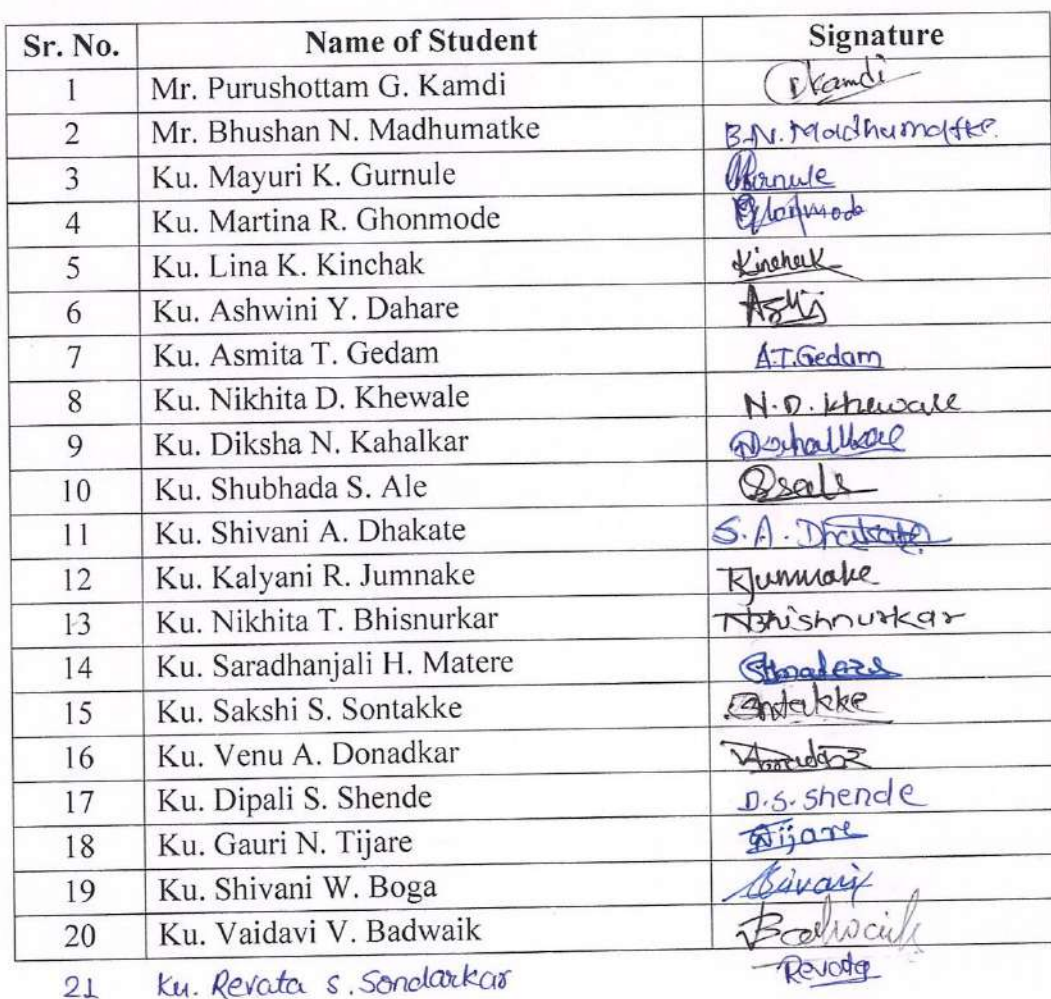 Sr. No. Name of Student Signature
1 Mr. Purushottam G. Kamdi Kamdi
2 Mr. Bhushan N. Madhumatke B.N. Madhumatke.
3 Ku. Mayuri K. Gurnule
4 Ku. Martina R. Ghonmode
5 Ku. Lina K. Kinchak Kinchak
6 Ku. Ashwini Y. Dahare
7 Ku. Asmita T. Gedam A.T.Gedam
8 Ku. Nikhita D. Khewale N.D. Khewale
9 Ku. Diksha N. Kahalkar
10 Ku. Shubhada S. Ale
11 Ku. Shivani A. Dhakate S.A. Dhakate
12 Ku. Kalyani R. Jumnake KJumnake
13 Ku. Nikhita T. Bhisnurkar NBhishnurkar
14 Ku. Saradhanjali H. Matere
15 Ku. Sakshi S. Sontakke Sontakke
16 Ku. Venu A. Donadkar
17 Ku. Dipali S. Shende D.S. Shende
18 Ku. Gauri N. Tijare Tijare
19 Ku. Shivani W. Boga Shivani
20 Ku. Vaidavi V. Badwaik Badwaik
21 Ku. Revata S. Sondarkar Revata